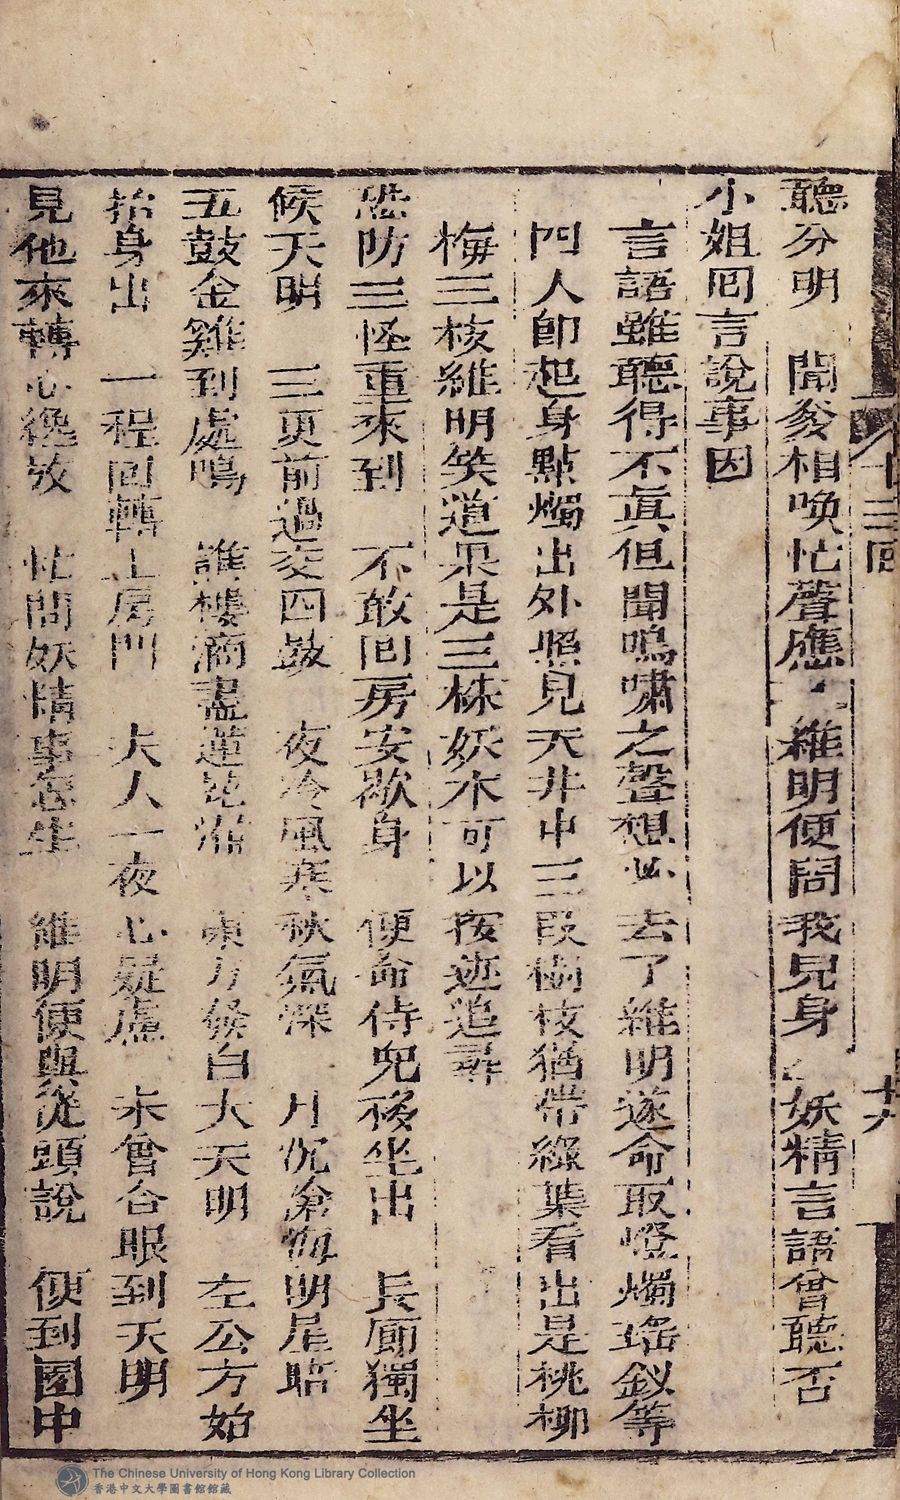 十三回
廿六
聽分明　聞爹相喚忙聲應　維明便問我兒身　妖精言語曾聽否
小姐囘言說事因
言語雖聽得不真但聞鳴嘯之聲想必去了維明遂命取燈燭瑤釵等
四人卽起身點燭出外照見天井中三段樹枝猶帶綠葉看出是桃柳
梅三枝維明笑道果是三株妖木可以按迹追尋
恐防三怪重來到　不敢囘房安歇身　便命侍兒移坐出　長廊獨坐
候天明　三更前過交四鼓　夜冷風寒秋氣深　月沉滄海明星
五鼓金雞到處鳴　譙樓滴盡蓮花漏　東方候白大天明　左公方始
抬身出　一程囘轉上房門　夫人一夜心疑慮　未曾合眼到天明
見他來轉心纔放　忙問妖精事怎生　維明便與從頭說　便到園中
The Chinese University of Hong Kong Library Collection
香港中文大學圖書館館藏